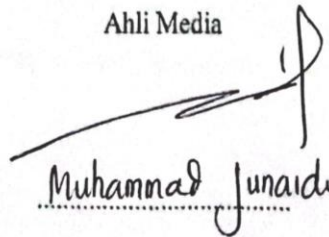 Ahli Media
Muhammad Junaidi